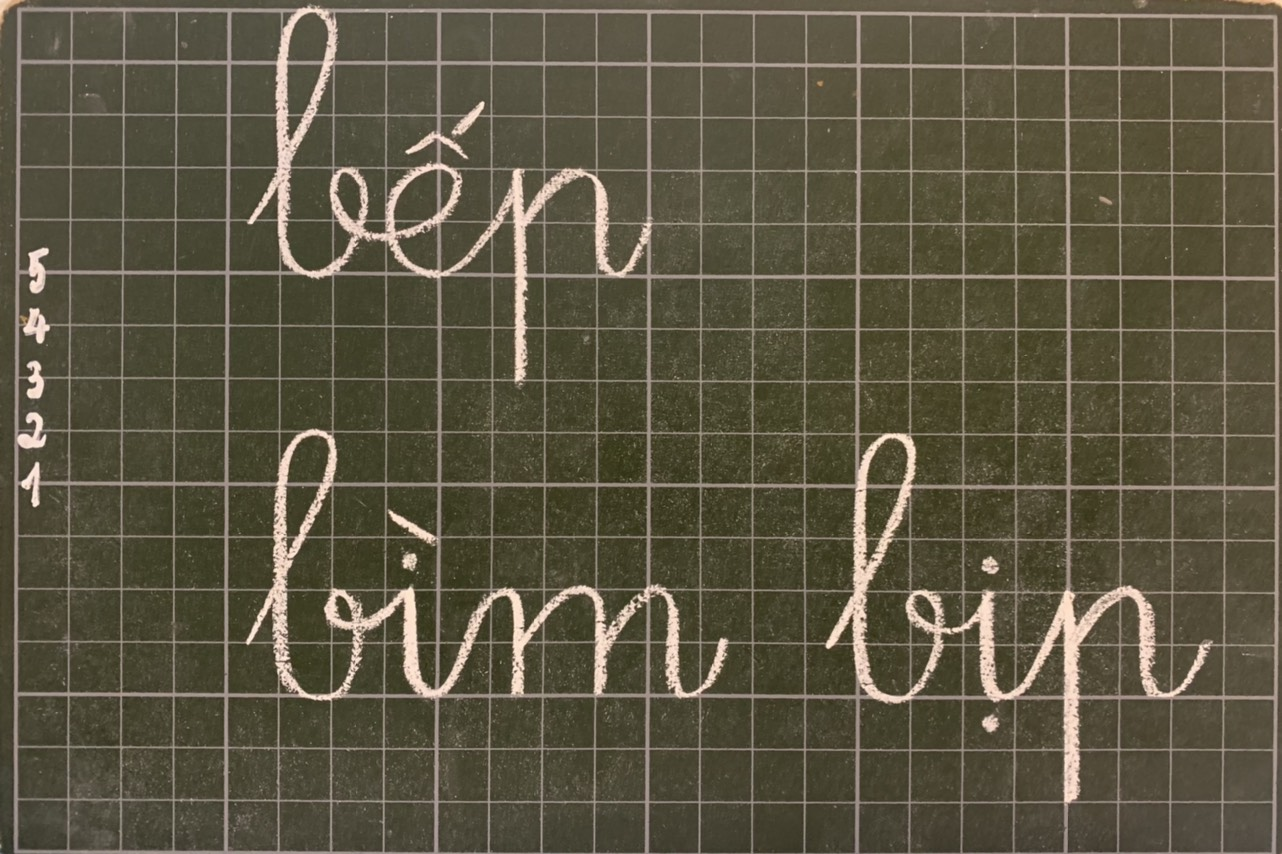 bếp
5
4
3
2
1
bìm bịp